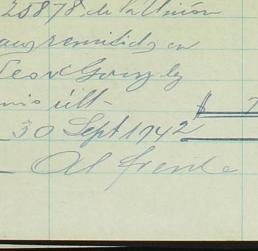 25878, de la Unión
remitido en
Gonzlez
últ-
$ 7
30 Sept 1942
Al frente